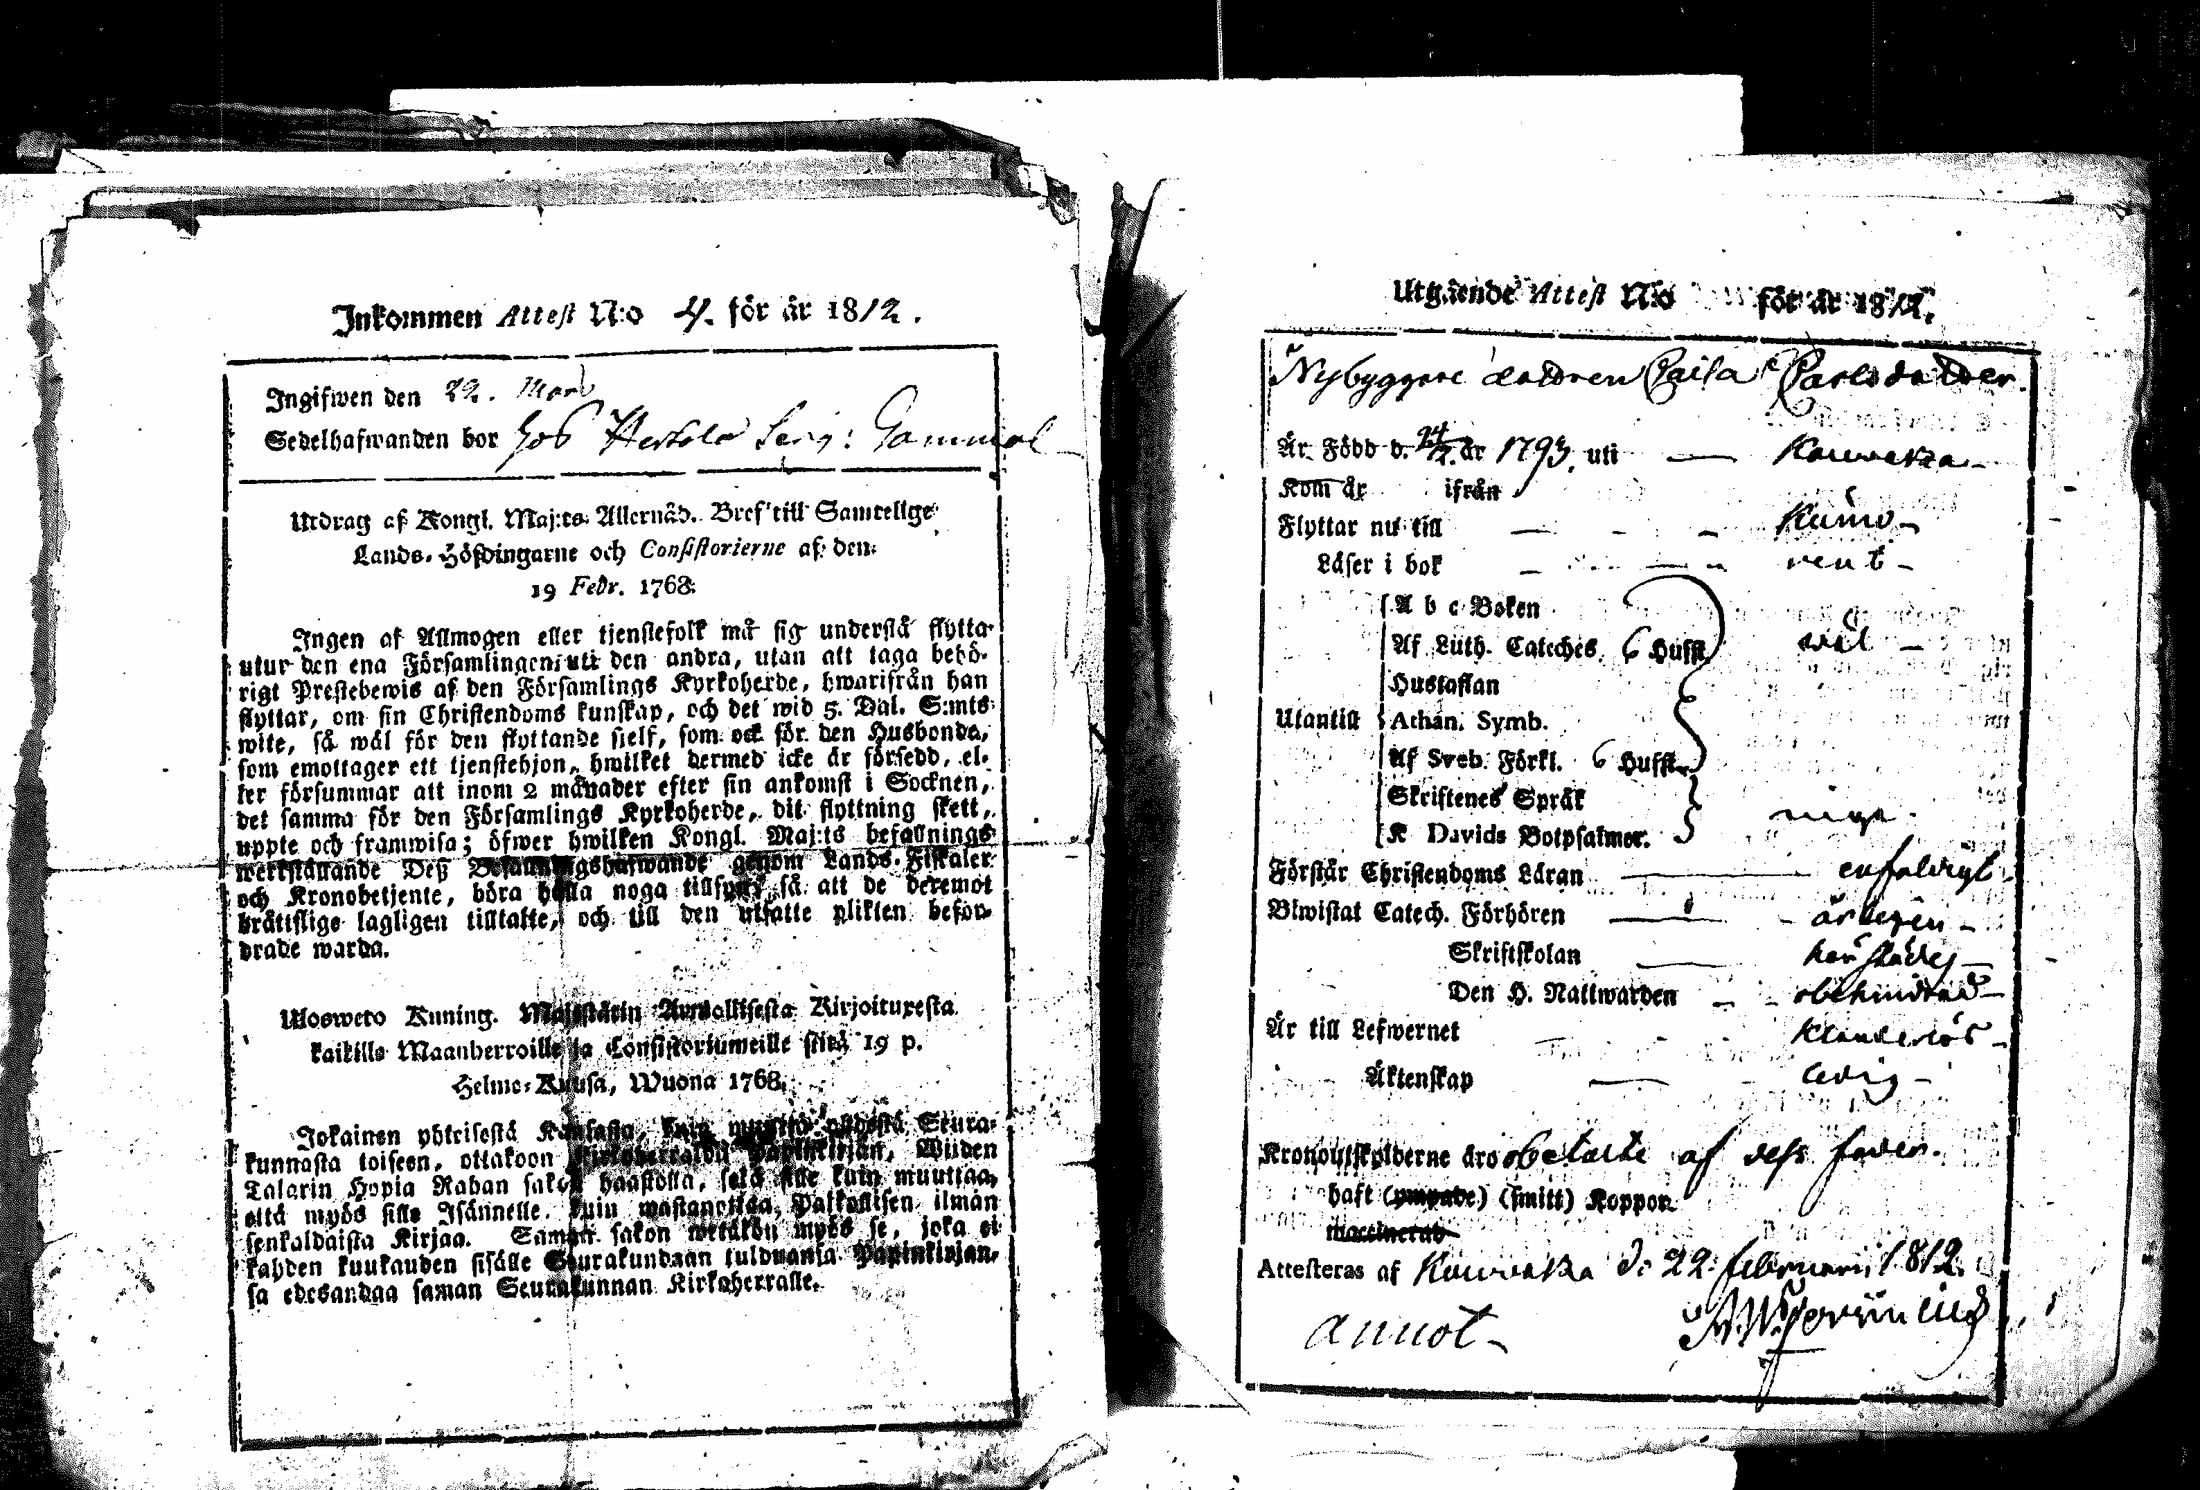 Inkommen Attest N:o 4. för år 1812.
Ingifwen den 22. Mars
Sedelhafwanden bor hos Hertola Gammal
Utdrag af Kongl. Maj:ts Allernåd. Bref till Samtellige
Lands-Höfdingarne och Consistorierne af den
19 Febr. 1768.
Ingen af Allmogen eller tjenstefolk må sig understå flytta
utur den ena Församlingen uti den andra, utan att taga behö-
rigt Prestebewis af den Församlings Kyrkoherde, hwarifrån han
flyttar, om sin Christendoms kunskap, och det wid 5. Dal. S:mts
wite, så wäl för den flyttande sielf, som ock för den Husbonde,
som emottager ett tjenstehjon, hwilket dermed icke är försedd, el-
ler försummar att inom 2 månader efter sin ankomst i Socknen,
det samma för den Församlings Kyrkoherde, dit flyttning skett,
uppte och framwisa; öfwer hwilken Kongl. Maj:ts befallnings
werkställande Deß Befallningshafwande genom Lands-Fiskaler
och Kronobetjente, böra hålla noga tillsyn, så att de deremot
brättslige lagligen tilltalte, och till den utsatte plikten befor-
drade warda.
Ulosweto Kuning. Majestätin Armollisesta Kirjoituxesta
kaikille Maanherroille ja Consistoriumeille siitä 19 p.
Helme-Kuusa, Wuona 1768.
Jokainen yhteisestä Kansasta, kuin muutta yhdestä Seura-
kunnasta toiseen, ottakoon Kirkoherralda Papinkirjan, Wiiden
Talarin Hopia Rahan sakon haastolla, sekä sille kuin muuttaa,
että myös sille Isännelle, kuin wastanottaa Palkollisen ilman
senkaldaista Kirjaa. Saman sakon wetäkön myös se, joka ei
kahden kuukauden sisälle Seurakundaan tulduansa Papinkirjan-
sa edesandaa saman Seurakunnan Kirkoherralle.
Utgående Attest N:o för år 1812.
Nybyggare dottren Caisa Carlsdotter.
Är Född d. 24/2. år 1793. uti Kauwatza
Kom år ifrån
Flyttar nu till Kumo
Läser i bok rent
A b c Boken
Af Luth. Cateches 6 Hufst. wäl
Hustaflan
Utantill Athan. Symb.
Af Sveb. Förkl. 6 Hufst.
Skriftenes Språk
K Davids Botpsalmer. inga
Förstår Christendoms Läran enfaldigt
Biwistat Catech. Förhören årligen
Skriftskolan härstädes
Den H. Nattwarden obehindrad
Är till Lefwernet klanderlös
Äktenskap ledig
Kronoutskylderne äro obetalte af dess fader.
haft (ympade) (smitt) Koppor.
vaccinerad
Attesteras af Kauwatza d. 22. februarii 1812.
annot